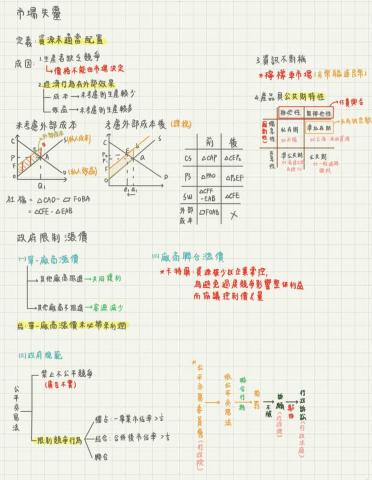 市場失靈
定義：資源未適當配置
成因：1.生產者缺乏競爭
↳價格不能由市場決定
2.經濟行為有外部效果
成本→未考慮則生產較少
效益→未考慮則生產較多
未考慮外部成本
考慮外部成本後（課稅）
外部成本
(私人成本)
(私人效益)
前 後
CS △CAP △CEP₂
PS △PAO
SW △CFE -EAB △CFE
外部成本 ▱FOAB ✗
社福=△CAO-▱FOBA
=△CFE-△EAB
3.資訊不對稱
*檸檬車市場
4.產品具公共財特性
排他性 無排他性
私有財 準私有財
準公共財 公共財
政府限制漲價
(一)單一廠商漲價
其他廠商跟進→共同獲利
其他廠商不跟進→客源減少
∴單一廠商漲價未必帶來利潤
(二)廠商聯合漲價
*卡特爾：資源被少數企業掌控，
為避免過度競爭影響整體利益
而協議控制價&量
(三)政府規範
公平交易法
禁止不公平競爭
(廣告不實)
限制競爭行為
獨占：一事業市佔率>½
結合：合併後市佔率>⅓
聯合
公平交易委員會(行政院)
依公平交易法
聯合行為
處罰
不服
訴願
行政訴訟